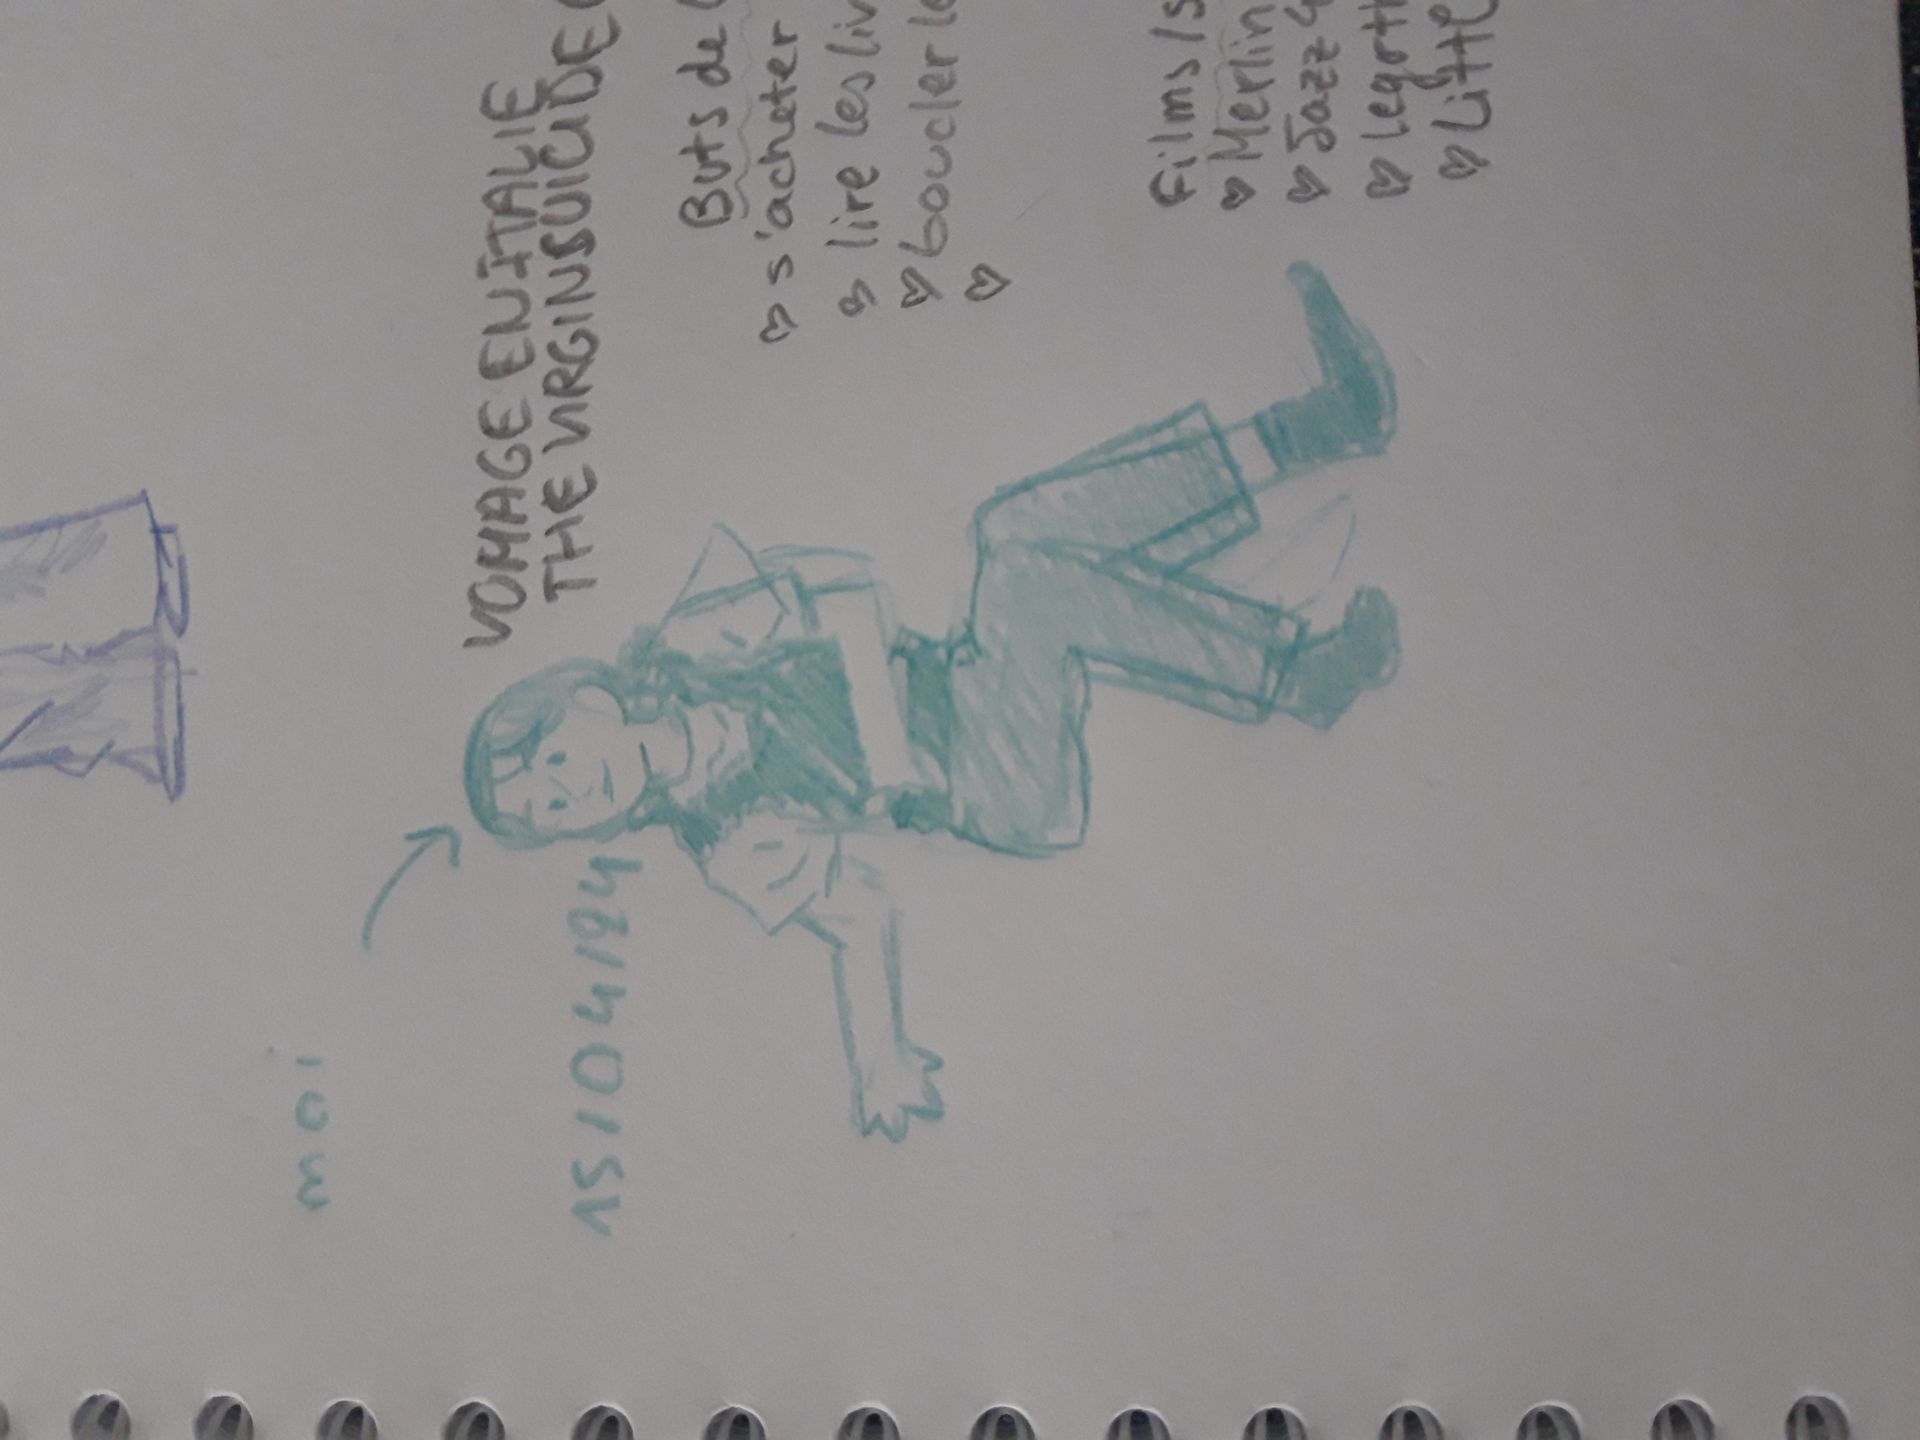 moi
15/04/24
VOYAGE EN ITALIE
THE VIRGIN SUICIDE
Buts de
♡ s'acheter
♡ lire les liv
♡ boucler le
♡
Films /s
♡ Merlin
♡ Jazz
♡ Legoth
♡ Littl